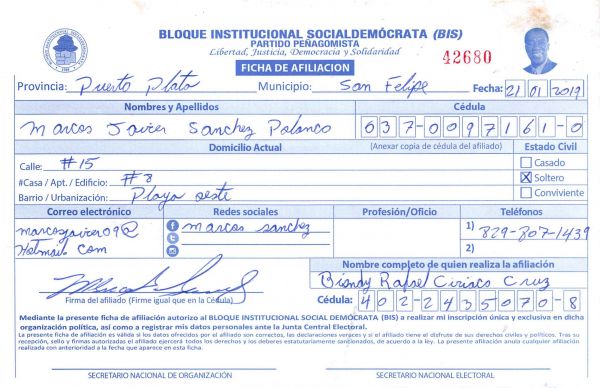 BLOQUE INSTITUCIONAL SOCIALDEMÓCRATA (BIS)
PARTIDO PEÑAGOMISTA
Libertad, Justicia, Democracia y Solidaridad
42680
FICHA DE AFILIACION
Provincia: Puerto Plata Municipio: San Felipe Fecha: 21/01/2019
Nombres y Apellidos Cédula
Marcos Javier Sanchez Polanco 037-0097161-0
Domicilio Actual (Anexar copia de cédula del afiliado) Estado Civil
Calle: #15 Casado
#Casa / Apt. / Edificio: #8 X Soltero
Barrio / Urbanización: Playa oeste Conviviente
Correo electrónico Redes sociales Profesión/Oficio Teléfonos
marcosjavier09@ marcos sanchez 1) 829-807-1439
Hotmail com 2)
Nombre completo de quien realiza la afiliación
Biandy Rafael Ciriaco Cruz
Firma del afiliado (Firme igual que en la Cédula) Cédula: 402-2435070-8
Mediante la presente ficha de afiliación autorizo al BLOQUE INSTITUCIONAL SOCIAL DEMÓCRATA (BIS) a realizar mi inscripción única y exclusiva en dicha
organización política, así como a registrar mis datos personales ante la Junta Central Electoral.
La presente ficha de afiliación es válida si los datos ofrecidos por el afiliado son correctos, las declaraciones verces y si el afiliado tiene el disfrute de sus derechos civiles y políticos. Tras su
recepción, sello y firmas autorizadas el afiliado ejercerá todos los derechos y los deberes estatutariamente sancionados, de acuerdo a la ley. La presente afiliación anula cualquier afiliación
realizada con anterioridad a la fecha que aparece en esta ficha.
SECRETARIO NACIONAL DE ORGANIZACIÓN SECRETARIO NACIONAL ELECTORAL